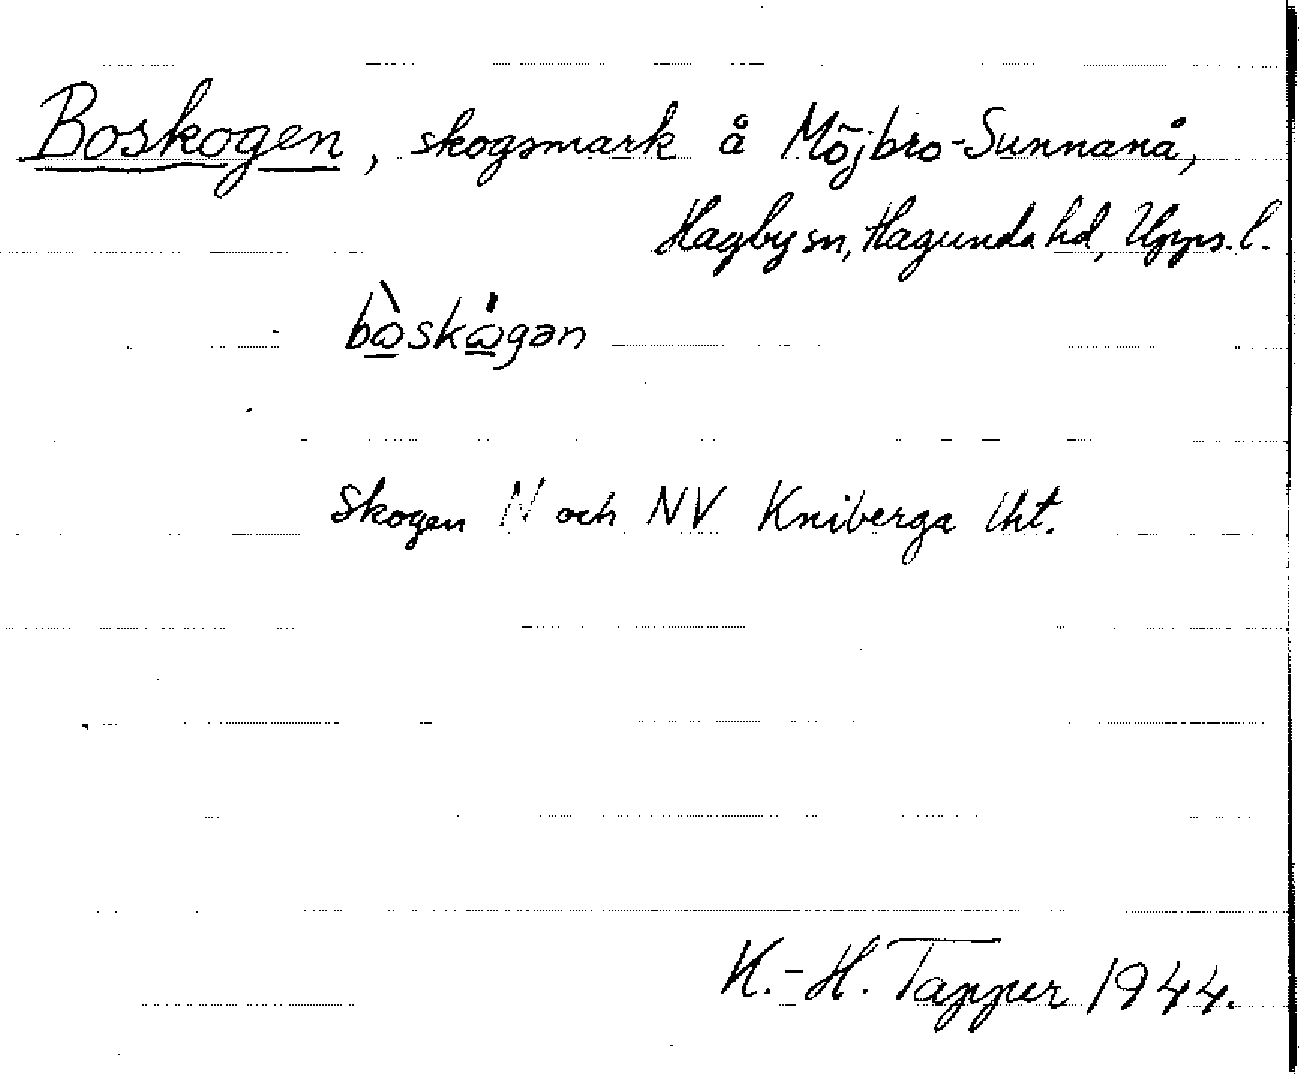 Boskogen, skogsmark å Möjbro-Sunnanå,
Hagby sn, Hagunda hd, Upps. l.
bὼ̲skώ̲gən
Skogen N och NV Kniberga lht.
K.-H. Tapper 1944.